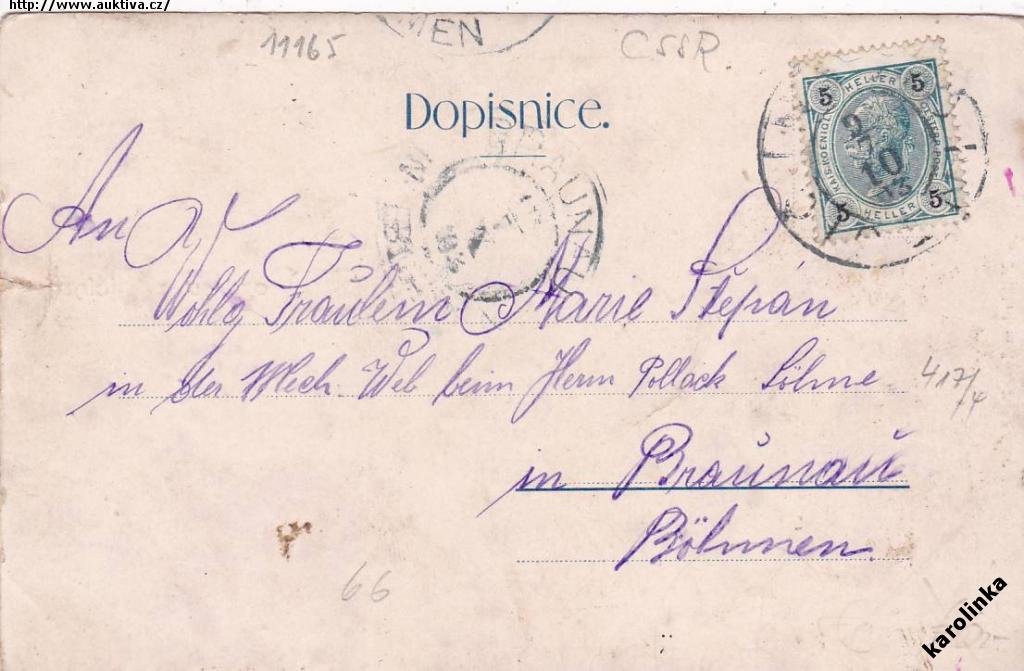 http://www.auktiva.cz/
11165
WIEN
CSSR.
Dopisnice.
5 HELLER 5
5 HELLER 5
9
10
BRAUNAU
An
Wohlg Fräulein Marie Štěpán
in der Mech. Web beim Herrn Pollack Söhne
417/4
in Braunau
Böhmen.
66
karolinka